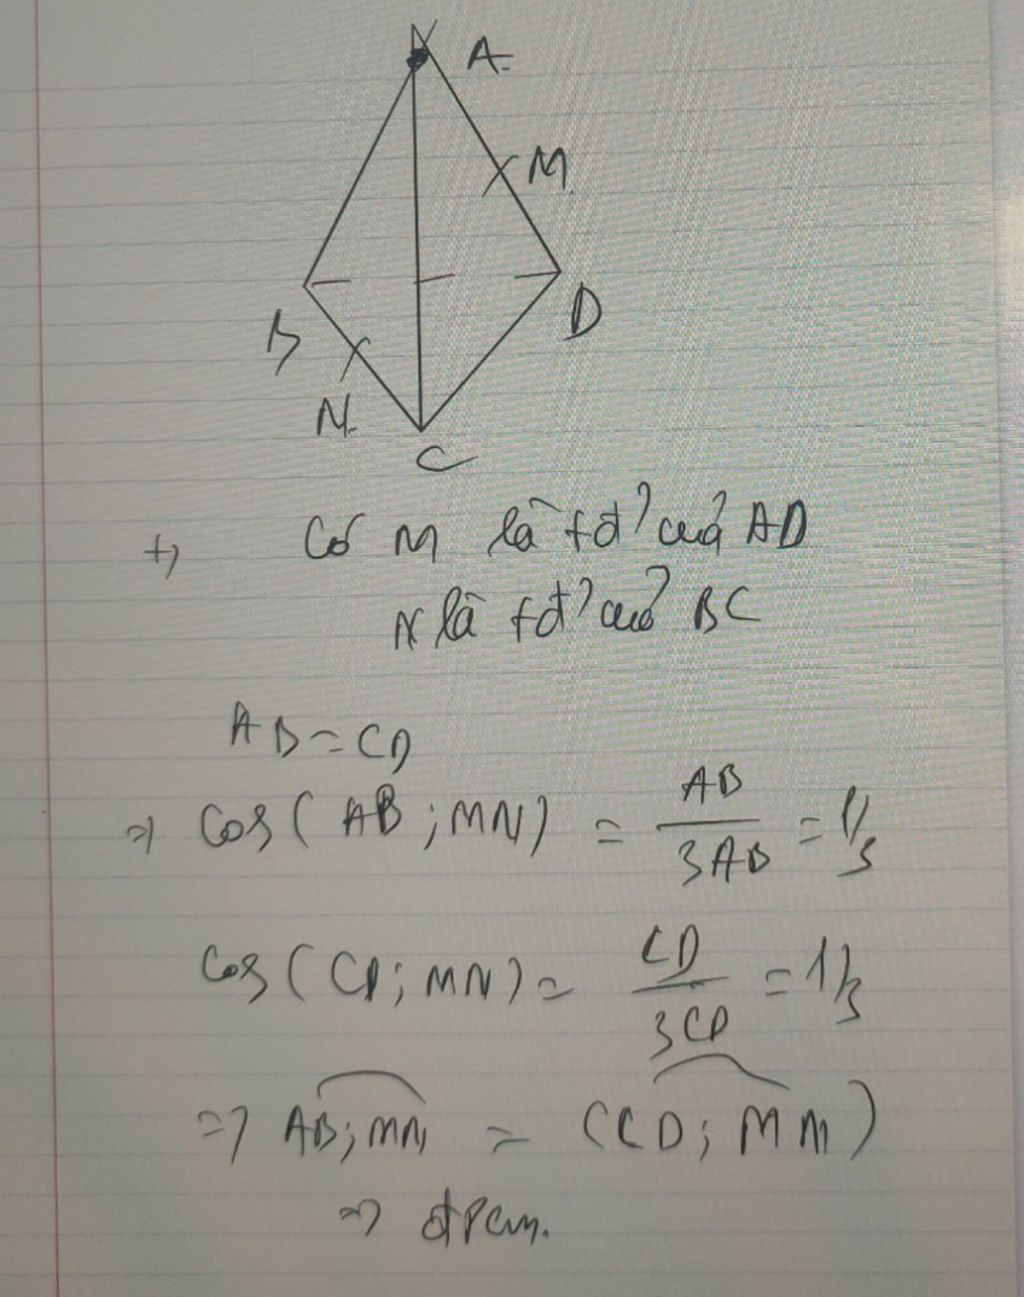 A
M
B
D
N
C
+) Có M là tđ' của AD
N là tđ' của BC
AB = CD
=> Cos ( AB ; MN ) = AB / 3AB = 1/3
Cos ( CD ; MN ) = CD / 3CD = 1/3
=> AB ; MN = ( CD ; MM )
=> đpcm.